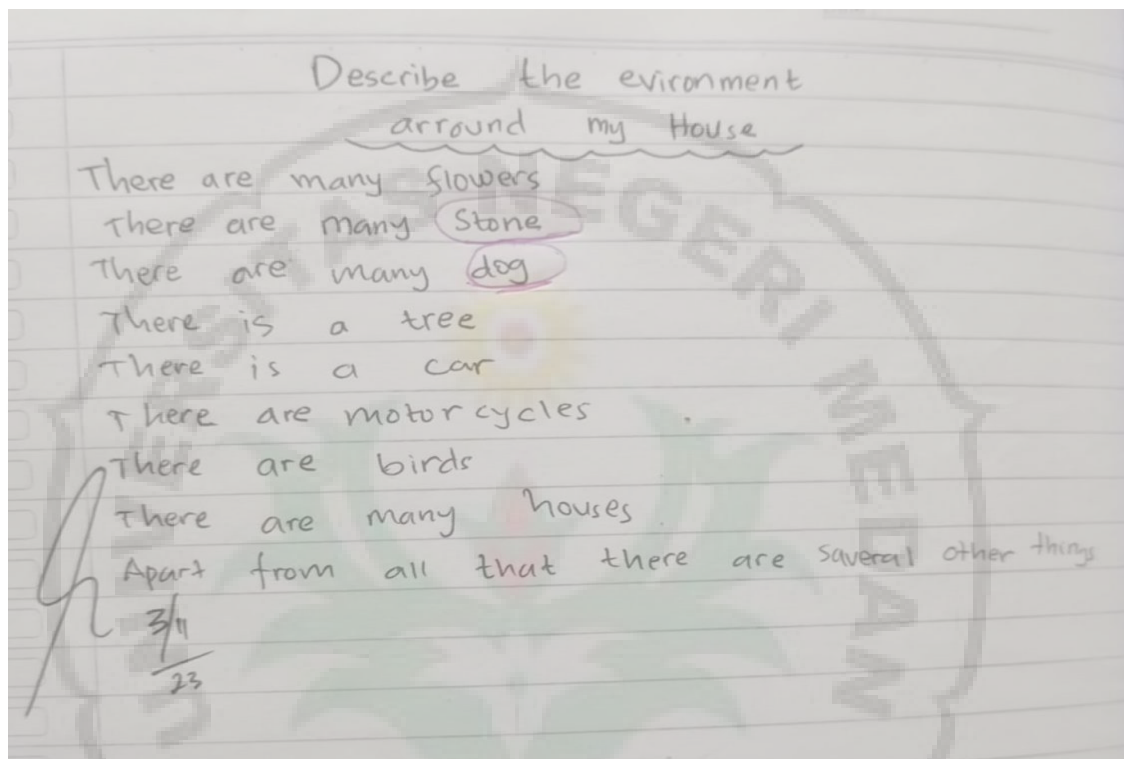 Describe the evironment
arround my House
There are many flowers
There are many Stone
There are many dog
There is a tree
There is a car
There are motorcycles
There are birds
There are many houses
Apart from all that there are saveral other things
3/11
23
UNIVERSITAS NEGERI MEDAN